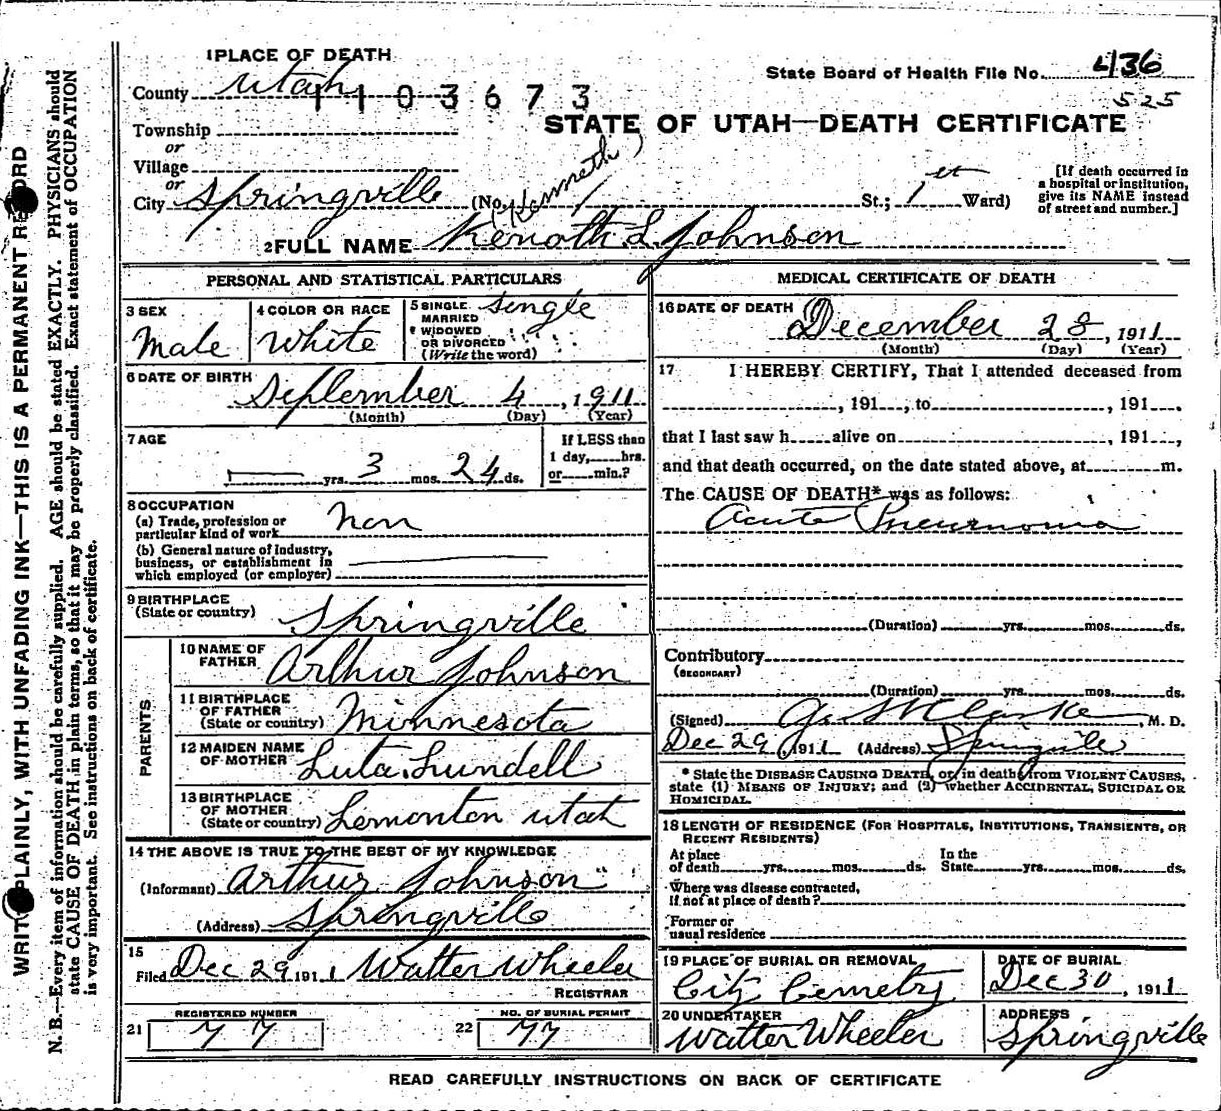 WRITE PLAINLY, WITH UNFADING INK—THIS IS A PERMANENT RECORD
N. B.—Every item of information should be carefully supplied. AGE should be stated EXACTLY. PHYSICIANS should
state CAUSE OF DEATH in plain terms, so that it may be properly classified. Exact statement of OCCUPATION
is very important. See instructions on back of certificate.
1 PLACE OF DEATH
State Board of Health File No. 436
County Utah 1103673
525
STATE OF UTAH—DEATH CERTIFICATE
Township
or
Village
or
City Springville (No. St.; 1st Ward)
(Kenneth)
[If death occurred in
a hospital or institution,
give its NAME instead
of street and number.]
2 FULL NAME Kenoth L. Johnson
PERSONAL AND STATISTICAL PARTICULARS
3 SEX Male
4 COLOR OR RACE White
5 SINGLE, MARRIED, WIDOWED OR DIVORCED (Write the word) Single
6 DATE OF BIRTH September 4, 1911
(Month) (Day) (Year)
7 AGE
yrs. 3 mos. 24 ds.
If LESS than
1 day, hrs.
or min.?
8 OCCUPATION
(a) Trade, profession or
particular kind of work non
(b) General nature of industry,
business, or establishment in
which employed (or employer)
9 BIRTHPLACE
(State or country) Springville
PARENTS
10 NAME OF
FATHER Arthur Johnson
11 BIRTHPLACE
OF FATHER
(State or country) Minnesota
12 MAIDEN NAME
OF MOTHER Luta Lundell
13 BIRTHPLACE
OF MOTHER
(State or country) Lemonton Utah
14 THE ABOVE IS TRUE TO THE BEST OF MY KNOWLEDGE
(Informant) Arthur Johnson
(Address) Springville
15
Filed Dec 29, 1911 Walter Wheeler
REGISTRAR
REGISTERED NUMBER
21 77
NO. OF BURIAL PERMIT
22 77
MEDICAL CERTIFICATE OF DEATH
16 DATE OF DEATH
December 28, 1911
(Month) (Day) (Year)
17 I HEREBY CERTIFY, That I attended deceased from
, 191 , to , 191 .
that I last saw h alive on , 191 ,
and that death occurred, on the date stated above, at m.
The CAUSE OF DEATH* was as follows:
Acute Pneumonia
(Duration) yrs. mos. ds.
Contributory
(SECONDARY)
(Duration) yrs. mos. ds.
(Signed) Clarke, M. D.
Dec 29, 1911 (Address) Springville
* State the DISEASE CAUSING DEATH, or, in deaths from VIOLENT CAUSES,
state (1) MEANS OF INJURY; and (2) whether ACCIDENTAL, SUICIDAL OR
HOMICIDAL.
18 LENGTH OF RESIDENCE (FOR HOSPITALS, INSTITUTIONS, TRANSIENTS, OR
RECENT RESIDENTS)
At place In the
of death yrs. mos. ds. State yrs. mos. ds.
Where was disease contracted,
if not at place of death?
Former or
usual residence
19 PLACE OF BURIAL OR REMOVAL
City Cemetry
DATE OF BURIAL
Dec 30, 1911
20 UNDERTAKER
Walter Wheeler
ADDRESS
Springville
READ CAREFULLY INSTRUCTIONS ON BACK OF CERTIFICATE